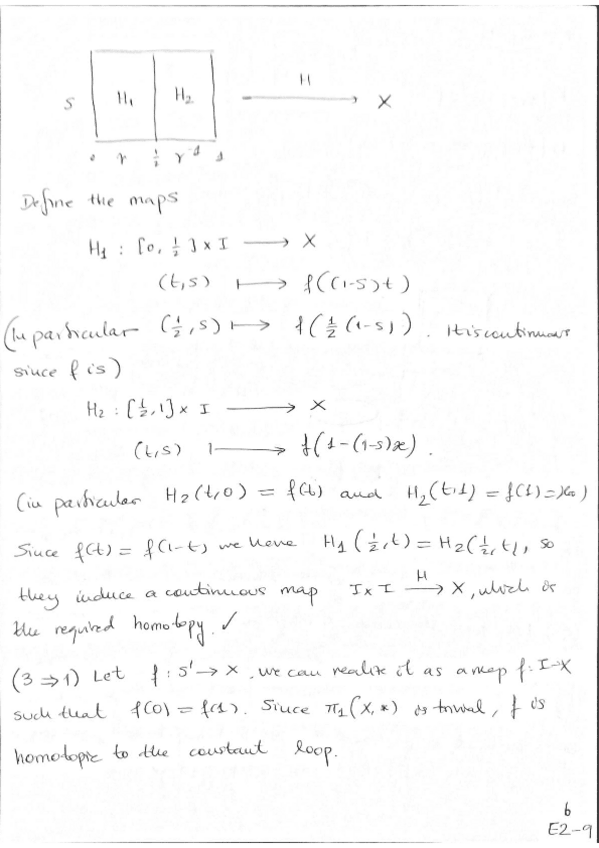 s H₁ H₂ H X
0 γ ½ γ⁻¹ 1
Define the maps
H₁ : [0, ½] × I ⟶ X
(t,s) ⟼ f((1-s)t)
(In particular (½, s) ⟼ f(½(1-s)). It is continuous
since f is)
H₂ : [½, 1] × I ⟶ X
(t,s) ⟼ f(1-(1-s)x).
(in particular H₂(t,0) = f(t) and H₂(t,1) = f(1) = x₀)
Since f(t) = f(1-t) we have H₁(½,t) = H₂(½,t), so
they induce a continuous map I×I ⟶ᴴ X, which is
the required homotopy. ✓
(3 ⇒ 1) Let f : S¹ → X. we can realize it as a map f: I→X
such that f(0) = f(1). Since π₁(X,*) is trivial, f is
homotopic to the constant loop.
6
E2-9